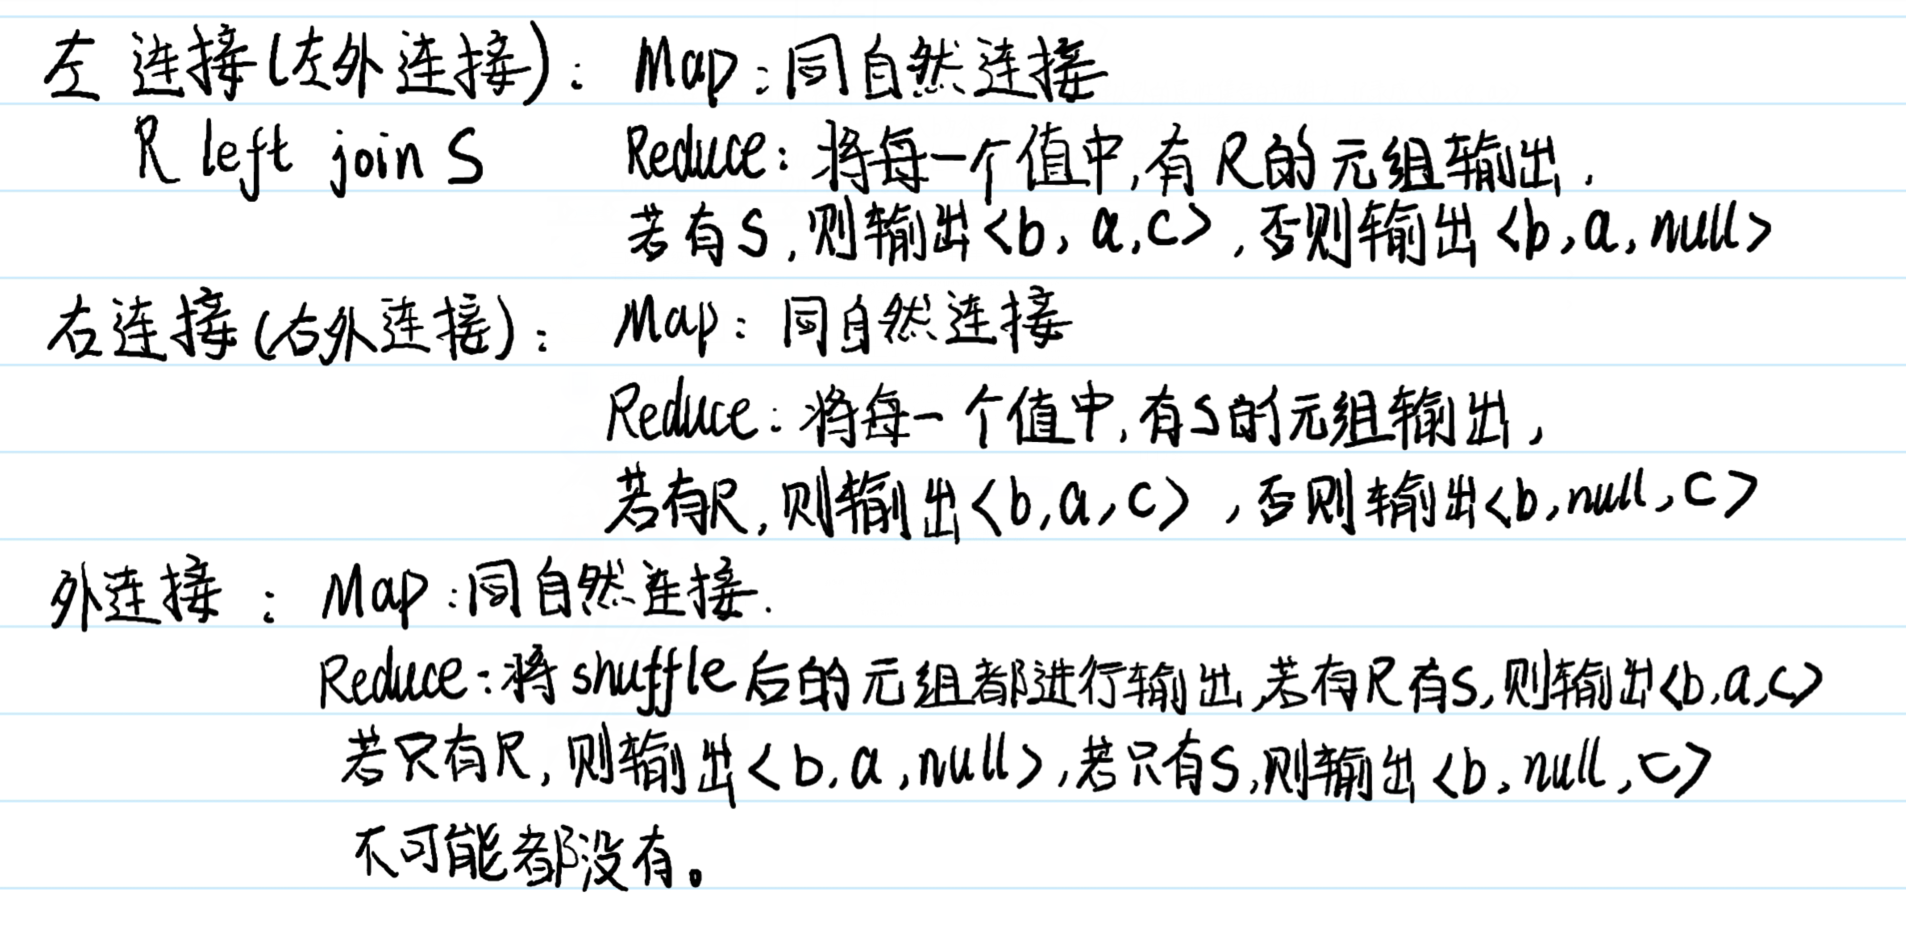 左连接(左外连接): Map:同自然连接
R left join S Reduce:将每一个值中,有R的元组输出.
若有S,则输出<b,a,c>,否则输出<b,a,null>
右连接(右外连接): Map:同自然连接
Reduce:将每一个值中,有S的元组输出,
若有R,则输出<b,a,c>,否则输出<b,null,c>
外连接: Map:同自然连接.
Reduce:将shuffle后的元组都进行输出,若有R有S,则输出<b,a,c>
若只有R,则输出<b,a,null>,若只有S,则输出<b,null,c>
不可能都没有。